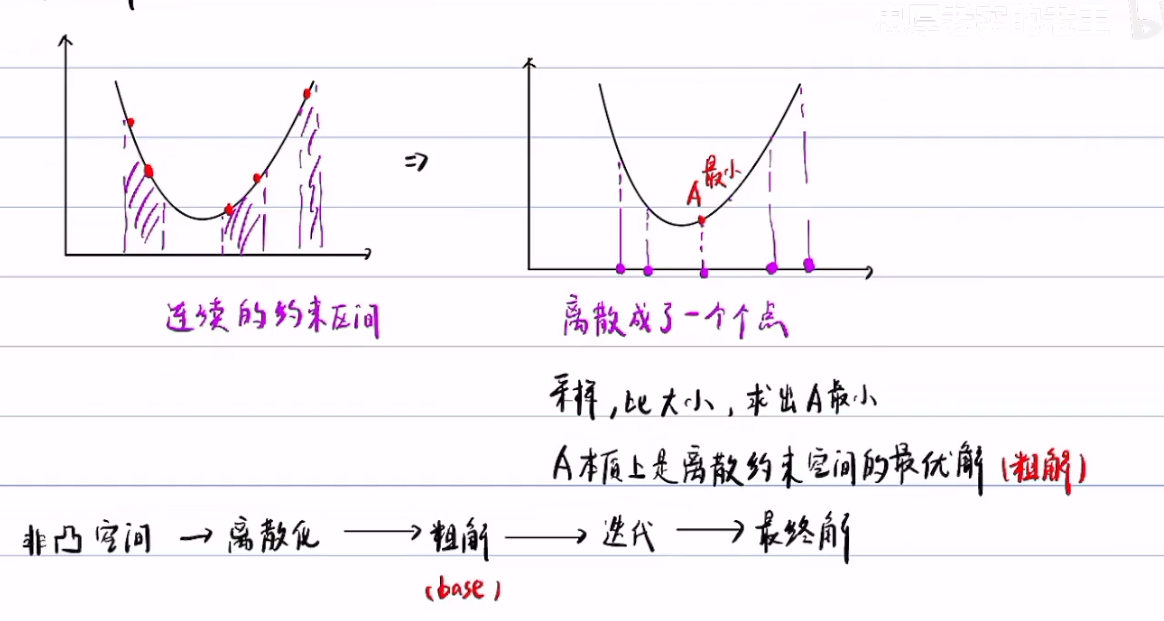 忠厚老实的老王
A最小
⇒
连续的约束区间
离散成了一个个点
采样,比大小,求出A最小
A本质上是离散约束空间的最优解(粗解)
非凸空间 → 离散化 → 粗解 → 迭代 → 最终解
(base)